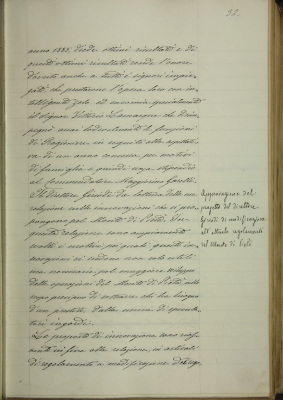 52.
anno 1885, diede ottimi risultati e di
questi ottimi risultati rende l'onore
dovuto anche a tutti i signori impie-
gati, che prestarono l'opera loro con in-
telligenza, zelo ed armonia, specialmente
il signor Vittorio che disim-
pegnò assai lodevolmente le funzioni
di Ragioniere, in seguito alla aspetta-
tiva di un anno concessa per motivi
di famiglia e senza stipendio
al commendatore
Il direttore quindi dà lettura della sua
relazione sulle innovazioni che si pro-
pongono pel Monte di Pietà. In
questa relazione sono
svolti i motivi pei quali queste in-
novazioni si rendono non solo utili
ma necessarie, pel maggiore sviluppo
delle operazioni del Monte di Pietà allo
scopo precipuo di sottrarre chi ha bisogno
d'un prestito dalle mene di specula-
tori ingordi.
Le proposte di innovazione sono rias-
sunte in fine alla relazione, in articoli
di regolamento a modificazione
Approvazione del
progetto del direttore
di modificazione
all'attuale regolamento
del Monte di Pietà